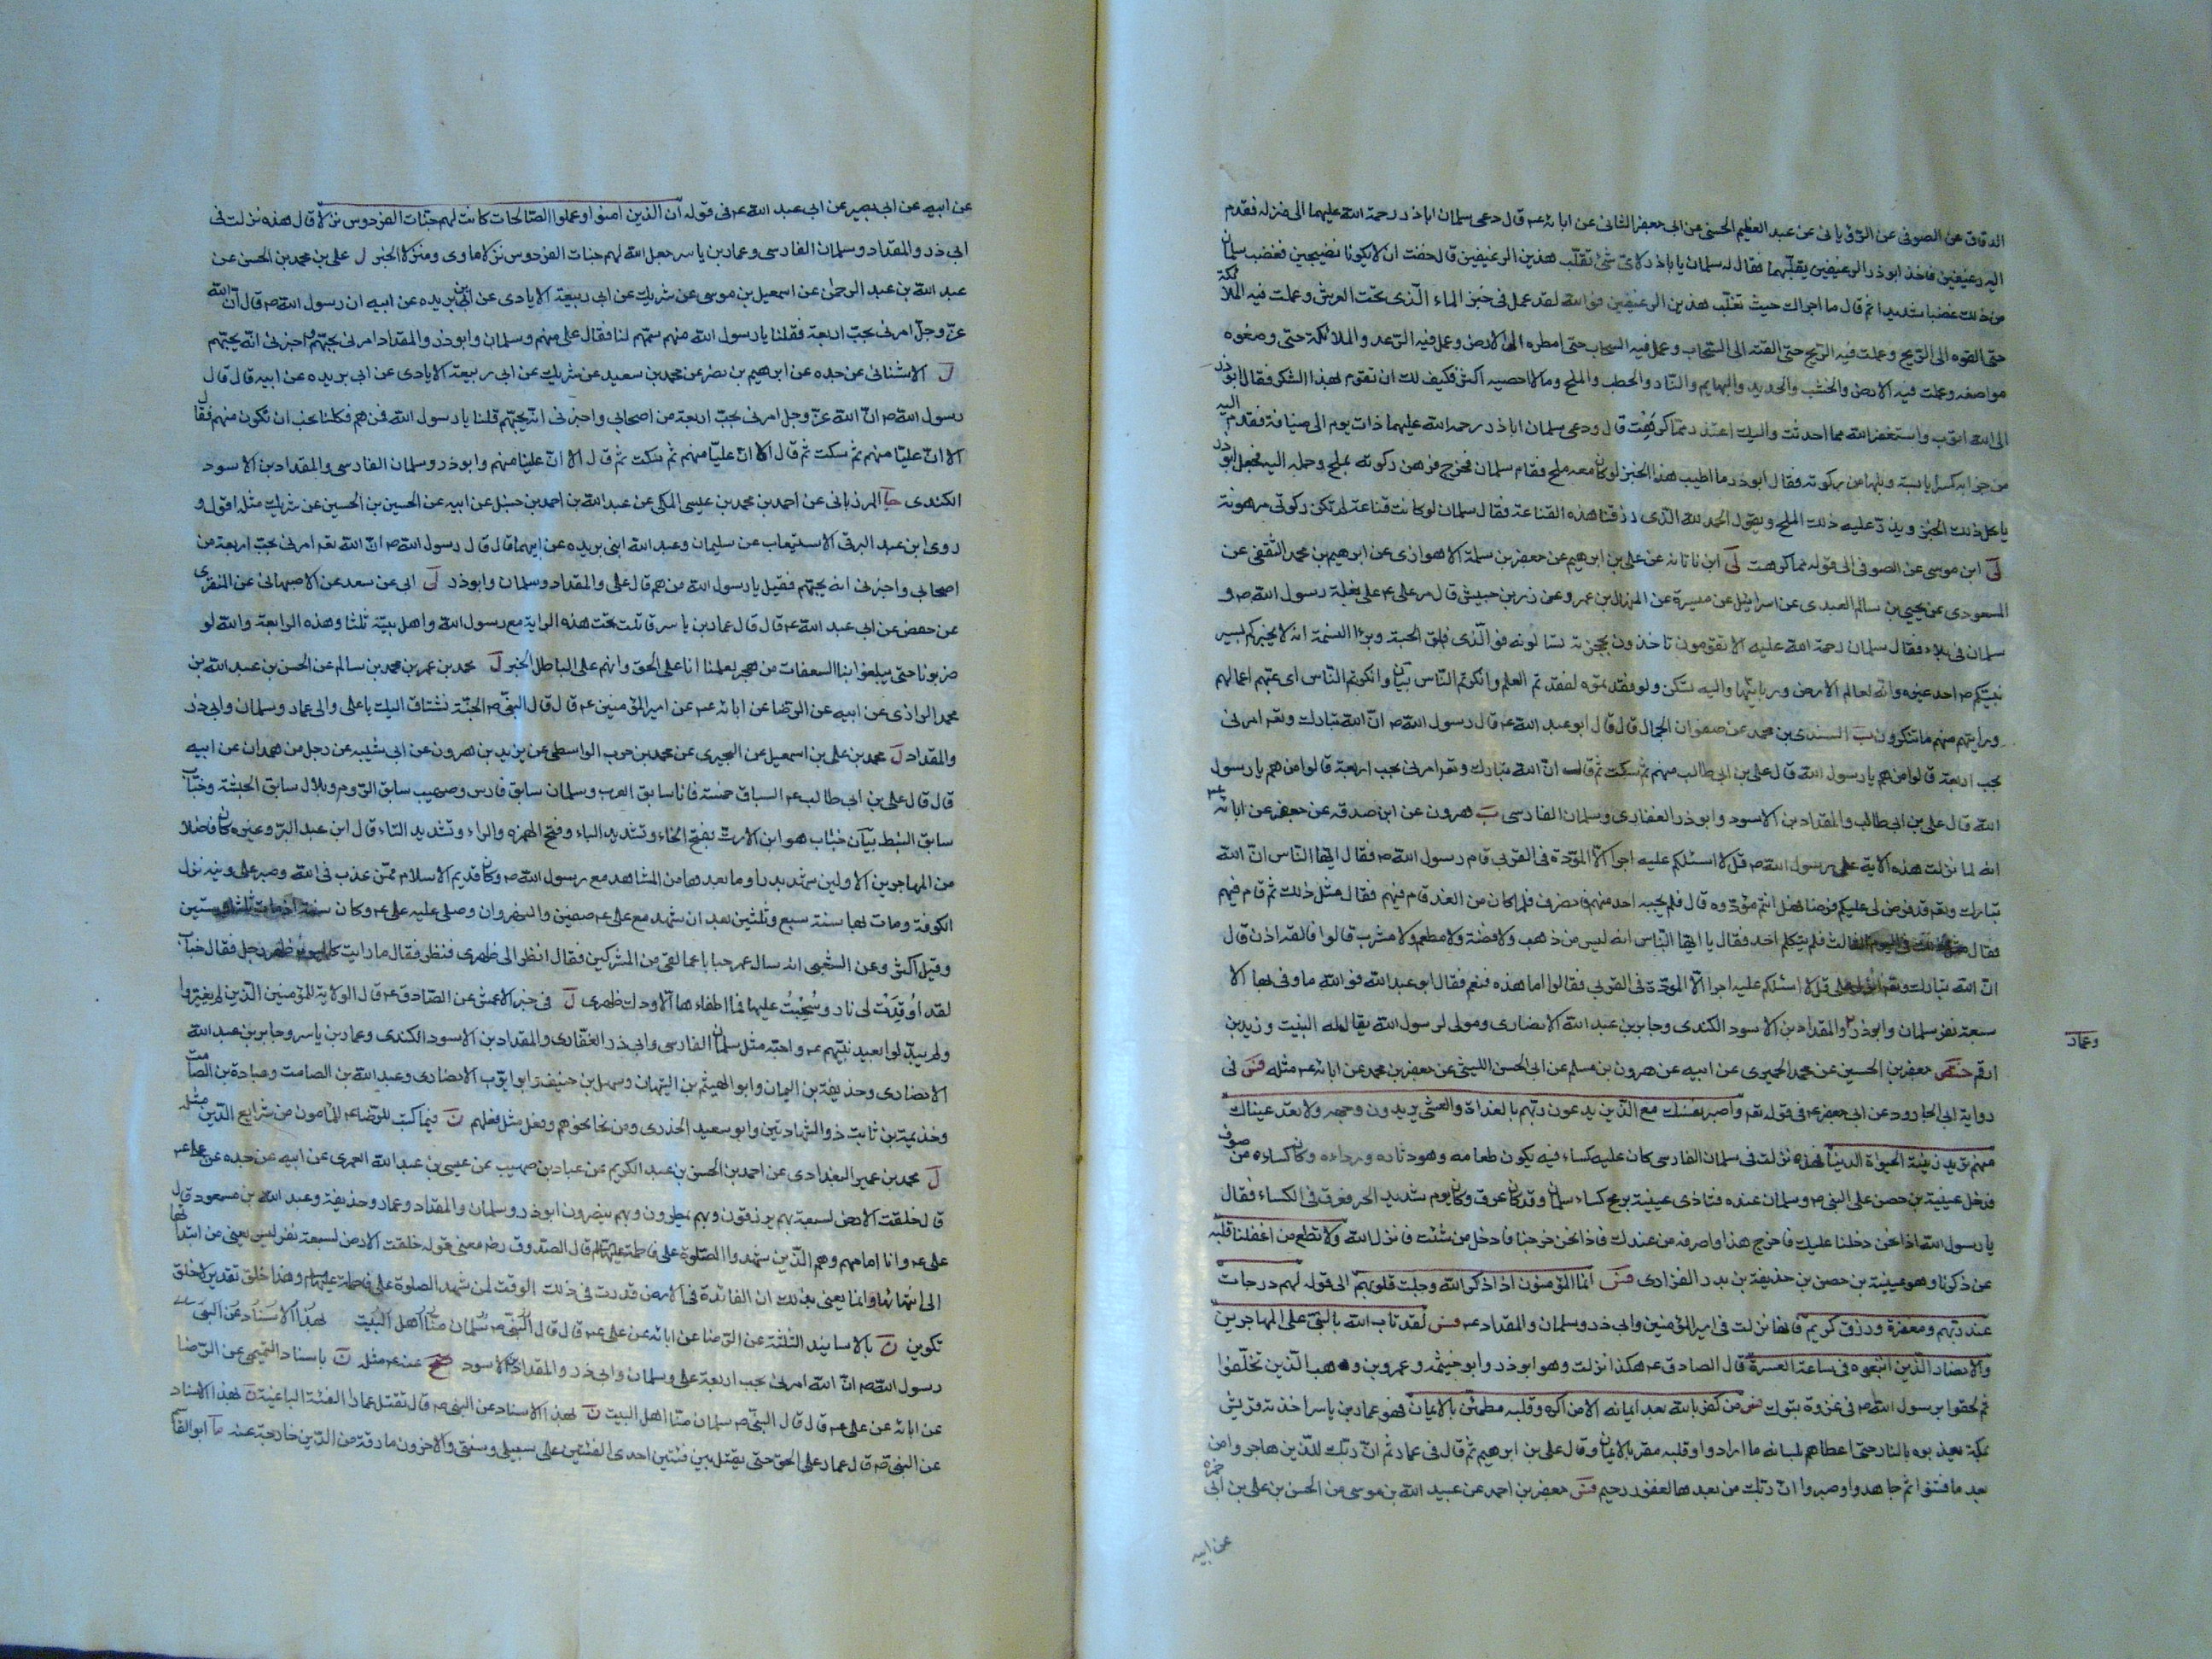 الدقاق عن الصوفى عن الرويانى عن عبد العظيم الحسنى عن ابى جعفر الثانى عن ابائه ع قال دعى سلمان اباذر رحمة الله عليهما الى منزله فقدم
اليه رغيفين فاخذ ابوذر الرغيفين يقلبهما فقال له سلمان يا باذر لاى شئ تقلب هذين الرغيفين قال خفت ان لا يكونا نضيجين فغضب سلمان
من ذلك غضبا شديدا ثم قال ما اجراك حيث تقلب هذين الرغيفين فوالله لقد عمل فى هذا الخبز الماء الذى تحت العرش وعملت فيه الملائكة
حتى القوه الى الريح وعملت فيه الريح حتى القته الى السحاب وعمل فيه السحاب حتى امطره الى الارض وعمل فيه الرعد والملائكة حتى وضعوه
مواضعه وعملت فيه الارض والخشب والحديد والبهايم والنار والحطب والملح وما لا احصيه اكثر فكيف لك ان تقوم بهذا الشكر فقال ابوذر
الى الله اتوب واستغفر الله مما احدثت واليك اعتذر مما كرهت قال ودعى سلمان اباذر رحمه الله عليهما ذات يوم الى ضيافة فقدم اليه
من جرابه كسرا يابسة وبلها من ركوته فقال ابوذر ما اطيب هذا الخبز لو كان معه ملح فقام سلمان فخرج فرهن ركوته بملح وحمله اليه فجعل ابوذر
ياكل ذلك الخبز ويذر عليه ذلك الملح ويقول الحمد لله الذى رزقنا هذه القناعة فقال سلمان لو كانت قناعة لم تكن ركوتى مرهونة
لى ابن موسى عن الصوفى الى قوله مما كرهت لى ابن ناتانه عن على بن ابرهيم عن جعفر بن سلمة الاهوازى عن ابرهيم بن محمد الثقفى عن
المسعودى عن يحيى بن سالم العبدى عن اسرائيل عن ميسرة عن المنهال بن عمرو عن زر بن حبيش قال مر على ع على بغلة رسول الله ص و
سلمان فى ملاء فقال سلمان رحمة الله عليه الا تقومون تاخذون بحجزته تسالونه فوالذى فلق الحبة وبرا النسمة انه لا يخبركم بسر
نبيكم ص احد غيره وانه لعالم الارض وربانيها واليه تسكن ولو فقدتموه لفقدتم العلم وانكرتم الناس
السندى بن محمد عن صفوان الجمال قال قال ابو عبد الله ع قال رسول الله ص ان الله تبارك وتعه امرنى
بحب اربعة قالوا من هم يا رسول الله قال على بن ابى طالب منهم ثم سكت ثم قال ان الله تبارك وتعه امرنى بحب اربعة قالوا من هم يا رسول
الله قال على بن ابى طالب والمقداد بن الاسود وابوذر الغفارى وسلمان الفارسى ب هرون عن ابن صدقه عن جعفر عن ابائه ع
انه لما نزلت هذه الاية على رسول الله ص قل لا اسئلكم عليه اجرا الا المودة فى القربى قام رسول الله ص فقال ايها الناس ان الله
تبارك وتعه قد فرض لى عليكم فرضا فهل انتم مؤدوه قال فلم يجبه احد منهم فانصرف فلما كان من الغد قام فيهم فقال مثل ذلك ثم قام فيهم
فقال مثل ذلك فى اليوم الثالث فلم يتكلم احد فقال يا ايها الناس انه ليس من ذهب ولا فضة ولا مطعم ولا مشرب قالوا فالقه اذن قال
ان الله تبارك وتعه انزل على قل لا اسئلكم عليه اجرا الا المودة فى القربى فقالوا اما هذه فنعم فقال ابو عبد الله فوالله ما وفى بها الا
سبعة نفر سلمان وابوذر والمقداد بن الاسود الكندى وجابر بن عبد الله الانصارى ومولى لرسول الله يقال له الثبيت وزيد بن
وعمار
ارقم ختص جعفر بن الحسين عن محمد الحميرى عن ابيه عن هرون بن مسلم عن ابى الحسن الليثى عن جعفر بن محمد عن ابائه ع مثله فس فى
رواية ابى الجارود عن ابى جعفر ع فى قوله تعه واصبر نفسك مع الذين يدعون ربهم بالغداة والعشى يريدون وجهه ولا تعد عيناك
عنهم تريد زينة الحيوة الدنيا فهذه نزلت فى سلمان الفارسى كان عليه كساء فيه يكون طعامه وهو دثاره ورداءه وكان كساءه من صوف
فدخل عيينة بن حصن على النبى ص وسلمان عنده فتاذى عيينة بريح كساء سلمان وقد كان عرق وكان يوم شديد الحر فعرق فى الكساء فقال
يا رسول الله اذا نحن دخلنا عليك فاخرج هذا واصرفه من عندك فاذا نحن خرجنا فادخل من شئت فانزل الله ولا تطع من اغفلنا قلبه
عن ذكرنا وهو عيينة بن حصن بن حذيفة بن بدر الفزارى فس انما المؤمنون اذا ذكر الله وجلت قلوبهم الى قوله لهم درجات
عند ربهم ومغفرة ورزق كريم فانها نزلت فى امير المؤمنين وابى ذر وسلمان والمقداد ع فس لقد تاب الله بالنبى على المهاجرين
والانصار الذين اتبعوه فى ساعة العسرة قال الصادق ع هكذا نزلت وهو ابوذر وابو خيثمه وعمرو بن وهب الذين تخلفوا
ثم لحقوا برسول الله ص فى غزوة تبوك فس من كفر بالله بعد ايمانه الا من اكره وقلبه مطمئن بالايمان فهو عمار بن ياسر اخذته قريش
بمكة يعذبوه بالنار حتى اعطاهم بلسانه ما ارادوا وقلبه مقر بالايمان وقال على بن ابرهيم ثم قال فى عمار ثم ان ربك للذين هاجروا من
بعد ما فتنوا ثم جاهدوا وصبروا ان ربك من بعدها لغفور رحيم فس جعفر بن احمد عن عبيد الله بن موسى عن الحسن بن على بن ابى حمزه
عن ابيه
عن ابيه عن ابى بصير عن ابى عبد الله ع فى قوله ان الذين امنوا وعملوا الصالحات كانت لهم جنات الفردوس نزلا قال هذه نزلت فى
ابى ذر والمقداد وسلمان الفارسى وعمار بن ياسر جعل الله لهم جنات الفردوس نزلا ماوى ومنزلا الخبر ل على بن محمد بن الحسن عن
عبد الله بن عبد الرحمن عن اسمعيل بن موسى عن شريك عن ابى ربيعة الايادى عن ابن بريده عن ابيه ان رسول الله ص قال ان الله
عز وجل امرنى بحب اربعة فقلنا يا رسول الله منهم سمهم لنا فقال على منهم وسلمان وابوذر والمقداد امرنى بحبهم واخبرنى انه يحبهم
ل الاشنانى عن جده عن ابرهيم بن نصر عن محمد بن سعيد عن شريك عن ابى ربيعة الايادى عن ابى بريده عن ابيه قال قال
رسول الله ص ان الله عز وجل امرنى بحب اربعة من اصحابى واخبرنى انه يحبهم قلنا يا رسول الله فمن هم فكلنا نحب ان نكون منهم فقال
الا ان عليا منهم ثم سكت ثم قال الا ان عليا منهم ثم سكت ثم قال الا ان عليا منهم وابوذر وسلمان الفارسى والمقداد بن الاسود
الكندى جا المرزبانى عن احمد بن محمد بن عيسى المكى عن عبد الله بن احمد بن حنبل عن ابيه عن الحسين بن الحسين عن شريك مثله اقول و
روى ابن عبد البر فى الاستيعاب عن سليمان وعبد الله ابنى بريده عن ابيهما قال قال رسول الله ص ان الله تعه امرنى بحب اربعة من
اصحابى واخبرنى انه يحبهم فقيل يا رسول الله من هم قال على والمقداد وسلمان وابوذر ل ابى عن سعد عن الاصبهانى عن المنقرى
عن حفص عن ابى عبد الله ع قال قال عمار بن ياسر قاتلت تحت هذه الراية مع رسول الله واهل بيته ثلثا وهذه الرابعة والله لو
ضربونا حتى يبلغوا بنا السعفات من هجر لعلمنا انا على الحق وانهم على الباطل الخبر ل محمد بن عمر بن محمد بن سالم عن الحسن بن عبد الله بن
محمد الرازى عن ابيه عن الرضا عن ابائه ع عن امير المؤمنين ع قال قال النبى ص الجنة تشتاق اليك يا على والى عمار وسلمان وابى ذر
والمقداد ل محمد بن على بن اسمعيل عن البجيرى عن محمد بن حرب الواسطى عن يزيد بن هرون عن ابى شيبه عن رجل من همدان عن ابيه
قال قال على بن ابى طالب ع السباق خمسة فانا سابق العرب وسلمان سابق فارس وصهيب سابق الروم وبلال سابق الحبشة وخباب
سابق النبط بيان خباب هو ابن الارت بفتح الخاء وتشديد الباء وفتح الهمزه والراء وتشديد التاء قال ابن عبد البر وغيره كان فاضلا
من المهاجرين الاولين شهد بدرا وما بعدها من المشاهد مع رسول الله ص وكان قديم الاسلام ممن عذب فى الله وصبر على دينه نزل
الكوفة ومات بها سنة سبع وثلثين بعد ان شهد مع على ع صفين والنهروان وصلى عليه على ع وكان سنه اذ مات ثلثا وستين
وقيل اكثر وعن الشعبى انه سال عمر خبابا عما لقى من المشركين فقال انظر الى ظهرى فنظر فقال ما رايت كاليوم ظهر رجل فقال خباب
لقد اوقدت لى نار وسحبت عليها فما اطفاها الا ودك ظهرى ل فى خبر الاعمش عن الصادق ع قال الولاية للمؤمنين الذين لم يغيروا
ولم يبدلوا بعد نبيهم ع واجبة مثل سلمان الفارسى وابى ذر الغفارى والمقداد بن الاسود الكندى وعمار بن ياسر وجابر بن عبد الله
الانصارى وحذيفة بن اليمان وابو الهيثم بن التيهان وسهل بن حنيف وابو ايوب الانصارى وعبد الله بن الصامت وعبادة بن الصامت
وخذيمة بن ثابت ذو الشهادتين وابو سعيد الخدرى ومن نحا نحوهم وفعل مثل فعلهم ن فيما كتب الرضا ع للمامون من شرايع الدين مثله
ل محمد بن عمير البغدادى عن احمد بن الحسن بن عبد الكريم عن عباد بن صهيب عن عيسى بن عبد الله العمرى عن ابيه عن جده عن على ع
قال خلقت الارض لسبعة بهم يرزقون وبهم يمطرون وبهم ينصرون ابوذر وسلمان والمقداد وعمار وحذيفة وعبد الله بن مسعود قال
على ع وانا امامهم وهم الذين شهدوا الصلوة على فاطمة عليها السلام قال الصدوق رضه معنى قوله خلقت الارض لسبعة نفر ليس يعنى من ابتدائها
الى انتهائها وانما يعنى بذلك ان الفائدة فى الارض قدرت فى ذلك الوقت لمن شهد الصلوة على فاطمة عليها السلام وهذا خلق تقدير لا خلق
تكوين ن بالاسانيد الثلثة عن الرضا عن ابائه عن على ع قال قال النبى ص سلمان منا اهل البيت بهذا الاسناد عن النبى
رسول الله ص ان الله امرنى بحب اربعة على وسلمان وابى ذر والمقداد بن الاسود صح عنه ع مثله ن باسناد التميمى عن الرضا
عن ابائه عن على ع قال قال النبى ص سلمان منا اهل البيت ن بهذا الاسناد عن النبى ص قال تقتل عمارا الفئة الباغية ن بهذا الاسناد
عن النبى ص قال عمار على الحق حتى يقتل بين فئتين احدى الفئتين على سبيلى وسنتى والاخرون مارقة من الدين خارجة عنه ما ابو القاسم